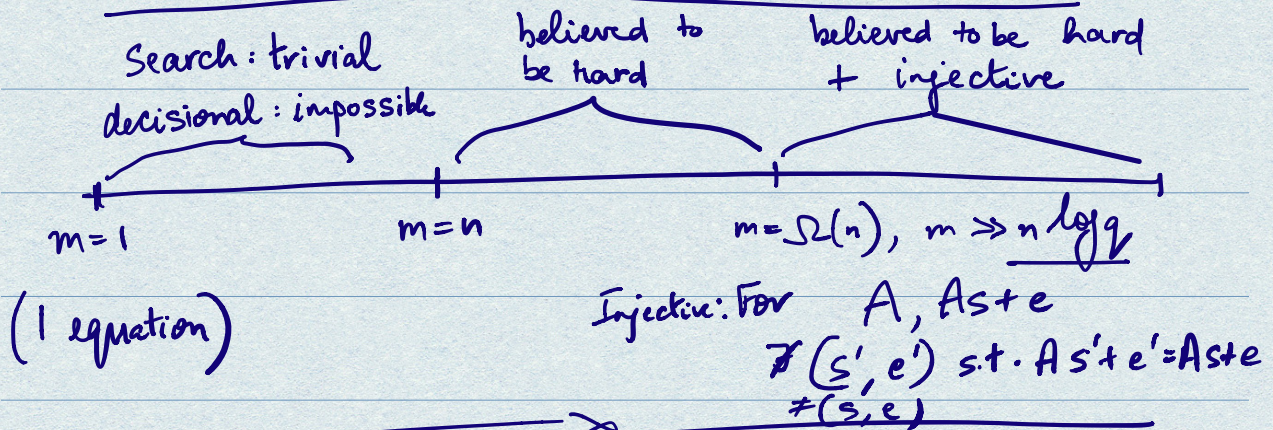 Search : trivial
decisional : impossible
believed to
be hard
believed to be hard
+ injective
m = 1
m = n
m = Ω(n), m ≫ n log q
(1 equation)
Injective: For A, As + e
∄ (s', e') s.t. As' + e' = As + e
≠ (s, e)